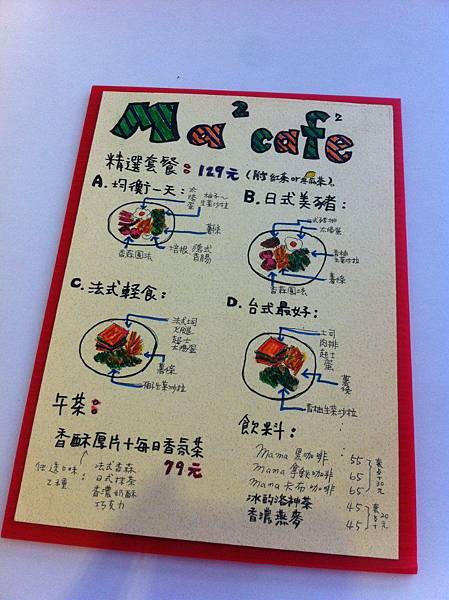 Ma² cafe²
精選套餐：129元（附紅茶or
A. 均衡一天：
太陽蛋
柚子
生菜沙拉
薯條
培根
德式香腸
香蒜圓法
B. 日式美豬：
日式豬排
太陽蛋
香柚
生菜沙拉
薯條
香蒜圓法
C. 法式輕食：
法式土司
火腿
起士
太陽蛋
薯條
生菜沙拉
D. 台式最好：
土司
肉排
起士
蛋
薯條
香柚生菜沙拉
午茶：
香酥厚片+每日香氛茶
79元
任選口味
2種：
法式香蒜
日式抹茶
香濃奶酥
巧克力
飲料：
mama 黑咖啡 55
mama 拿鐵咖啡 65
mama 卡布咖啡 65
冰的洛神茶 45
香濃燕麥 45